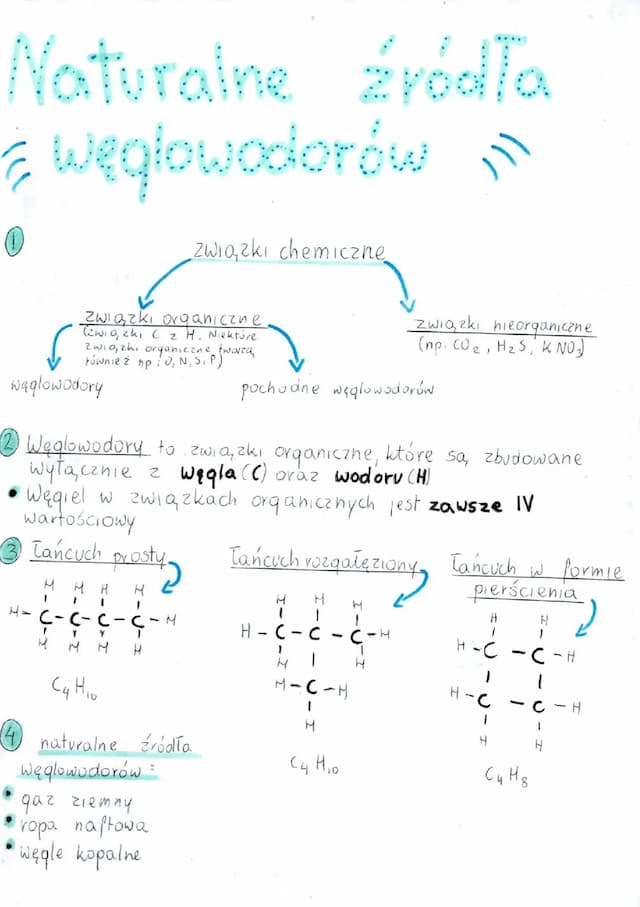 Naturalne źródła
węglowodorów
1
związki chemiczne
związki organiczne
(związki C z H. Niektóre
związki organiczne tworzą
również np: O, N, S i P)
związki nieorganiczne
(np. CO2, H2S, KNO3)
węglowodory
pochodne węglowodorów
2 Węglowodory to związki organiczne, które są zbudowane
wyłącznie z węgla (C) oraz wodoru (H)
• Węgiel w związkach organicznych jest zawsze IV
wartościowy
3 Łańcuch prosty
H H H H
H-C-C-C-C-H
H H H H
C4H10
Łańcuch rozgałęziony
H H H
H-C-C-C-H
H H
H-C-H
H
C4H10
Łańcuch w formie
pierścienia
H H
H-C-C-H
H-C-C-H
H H
C4H8
4 naturalne źródła
węglowodorów:
• gaz ziemny
• ropa naftowa
• węgle kopalne